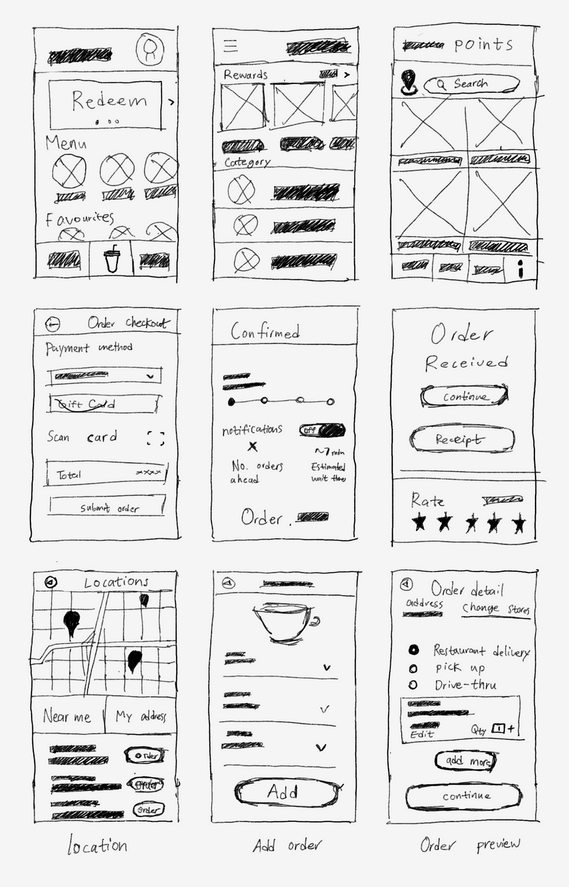 Redeem
Menu
Favourites
Rewards
Category
points
Search
Order checkout
Payment method
Gift Card
Scan card
Total ××××
Submit order
Confirmed
notifications OFF
X ~7 min
No. orders ahead
Estimated wait time
Order
Order
Received
continue
Receipt
Rate
Locations
Near me My address
order
order
order
location
Add
Add order
Order detail
address change store
Restaurant delivery
pick up
Drive-thru
Edit Qty 1 +
add more
continue
Order preview